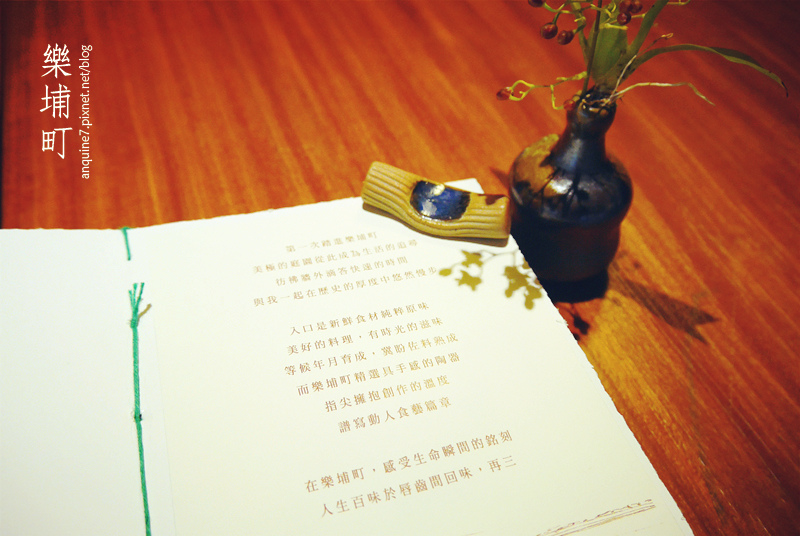 樂埔町
anquine7.pixnet.net/blog
第一次踏進樂埔町
美極的庭園從此成為生活的追尋
彷彿牆外滴答快速的時間
與我一起在歷史的厚度中悠然慢步
入口是新鮮食材純粹原味
美好的料理，有時光的滋味
等候年月育成，冀盼佐料熟成
而樂埔町精選具手感的陶器
指尖擁抱創作的溫度
譜寫動人食藝篇章
在樂埔町，感受生命瞬間的銘刻
人生百味於唇齒間回味，再三